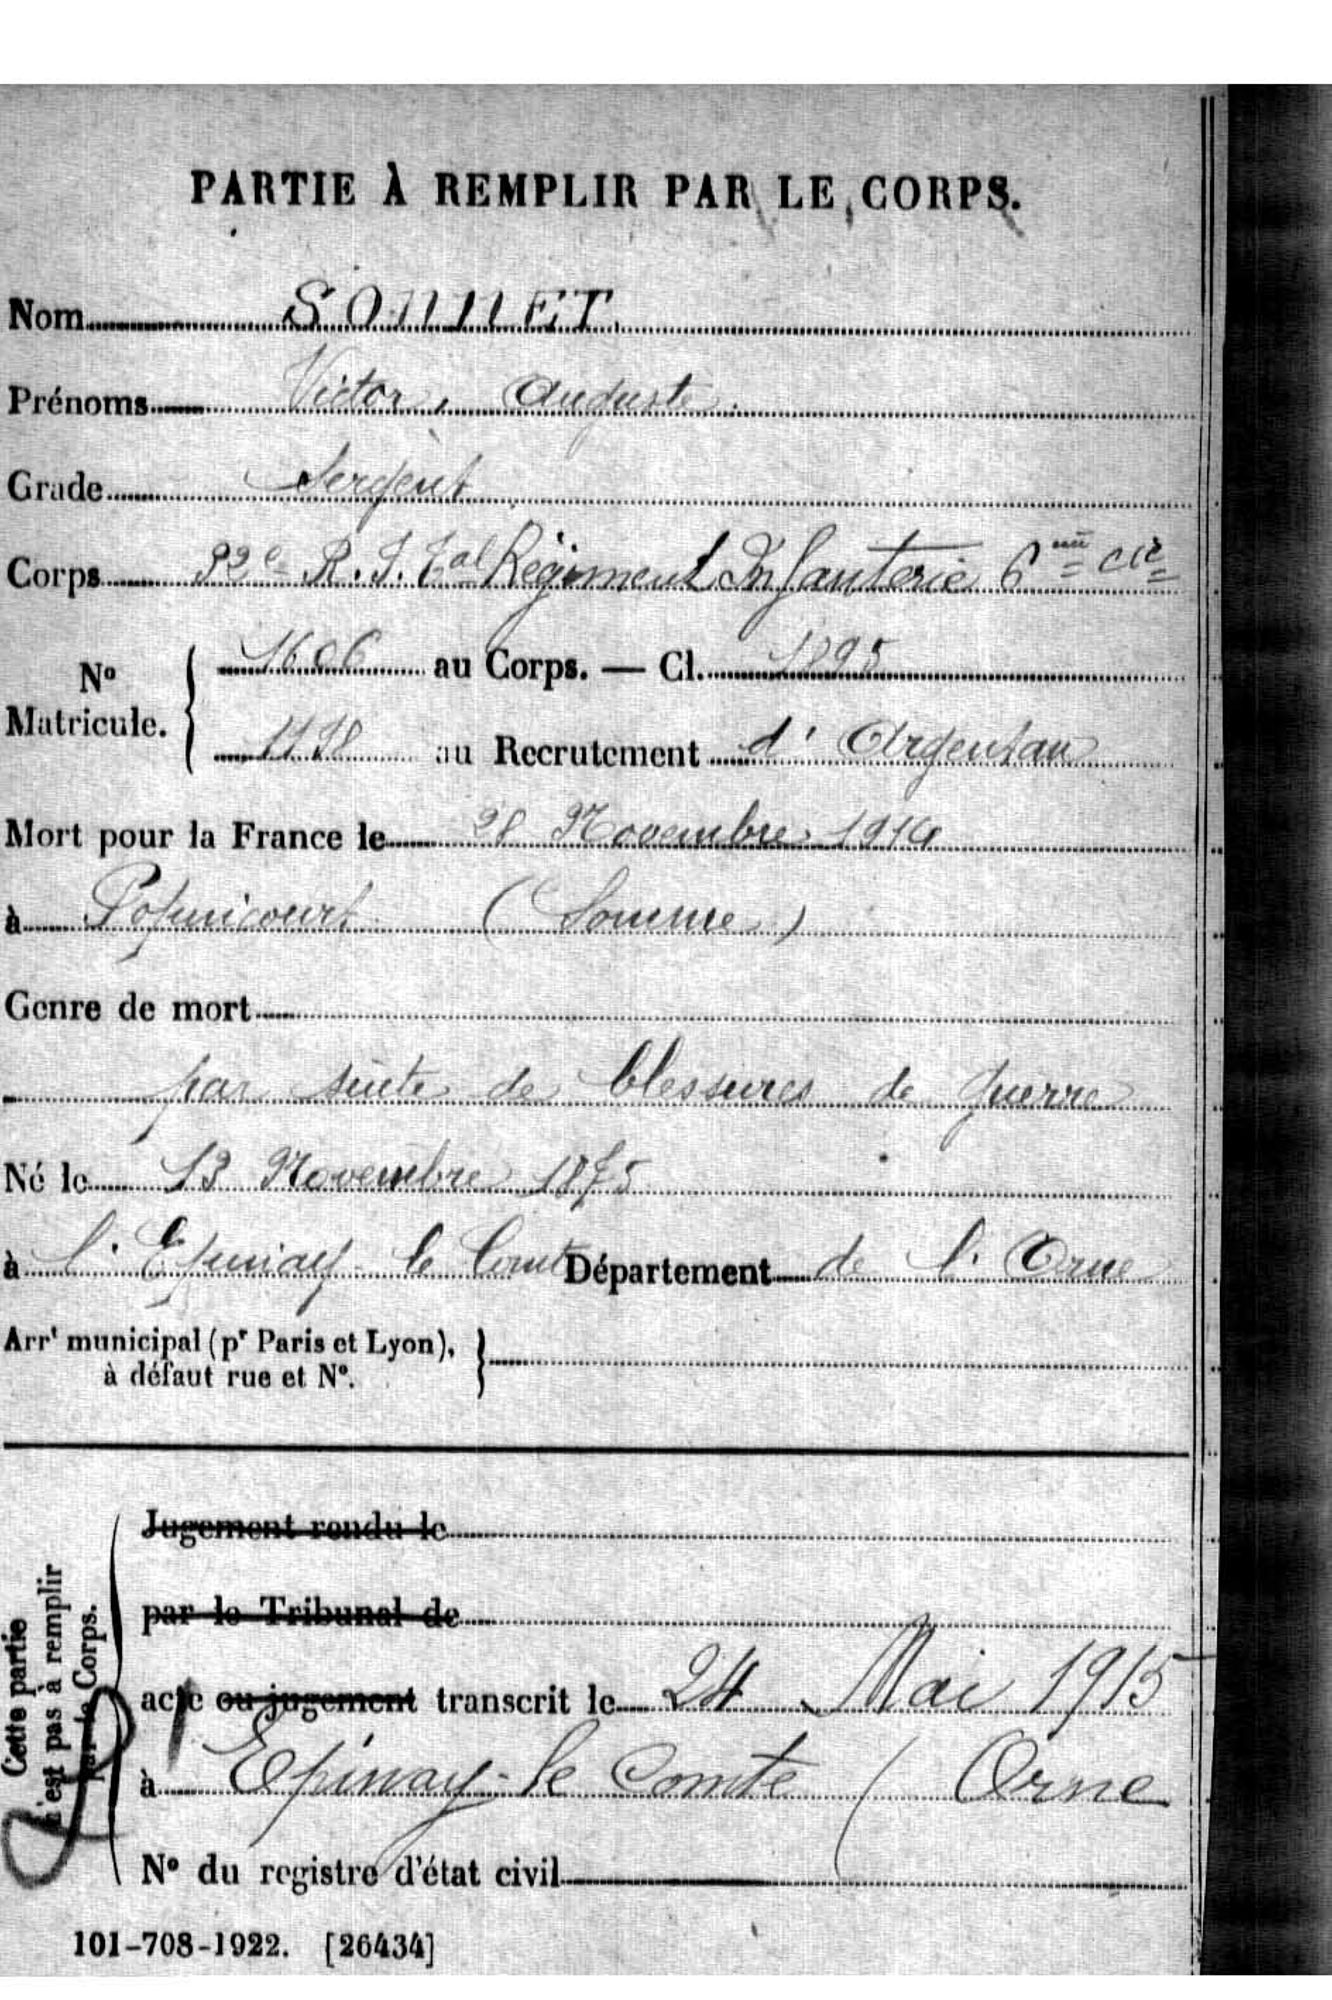 PARTIE À REMPLIR PAR LE CORPS.
Nom SONNET
Prénoms Victor, Auguste.
Grade Sergent
Corps 32e R.I.Tal Régiment Infanterie 6me Cie
No
Matricule.
1606 au Corps. — Cl. 1895
1198 au Recrutement d'Argentan
Mort pour la France le 28 Novembre 1914
à Popincourt (Somme)
Genre de mort
par suite de blessures de guerre
Né le 13 Novembre 1875
à l'Epinay le Comte Département de l'Orne
Arrt municipal (pr Paris et Lyon),
à défaut rue et N°.
Cette partie
n'est pas à remplir
par le Corps.
Jugement rendu le
par le Tribunal de
acte ou jugement transcrit le 24 Mai 1915
à Epinay-le Comte (Orne
N° du registre d'état civil
101-708-1922. [26434]